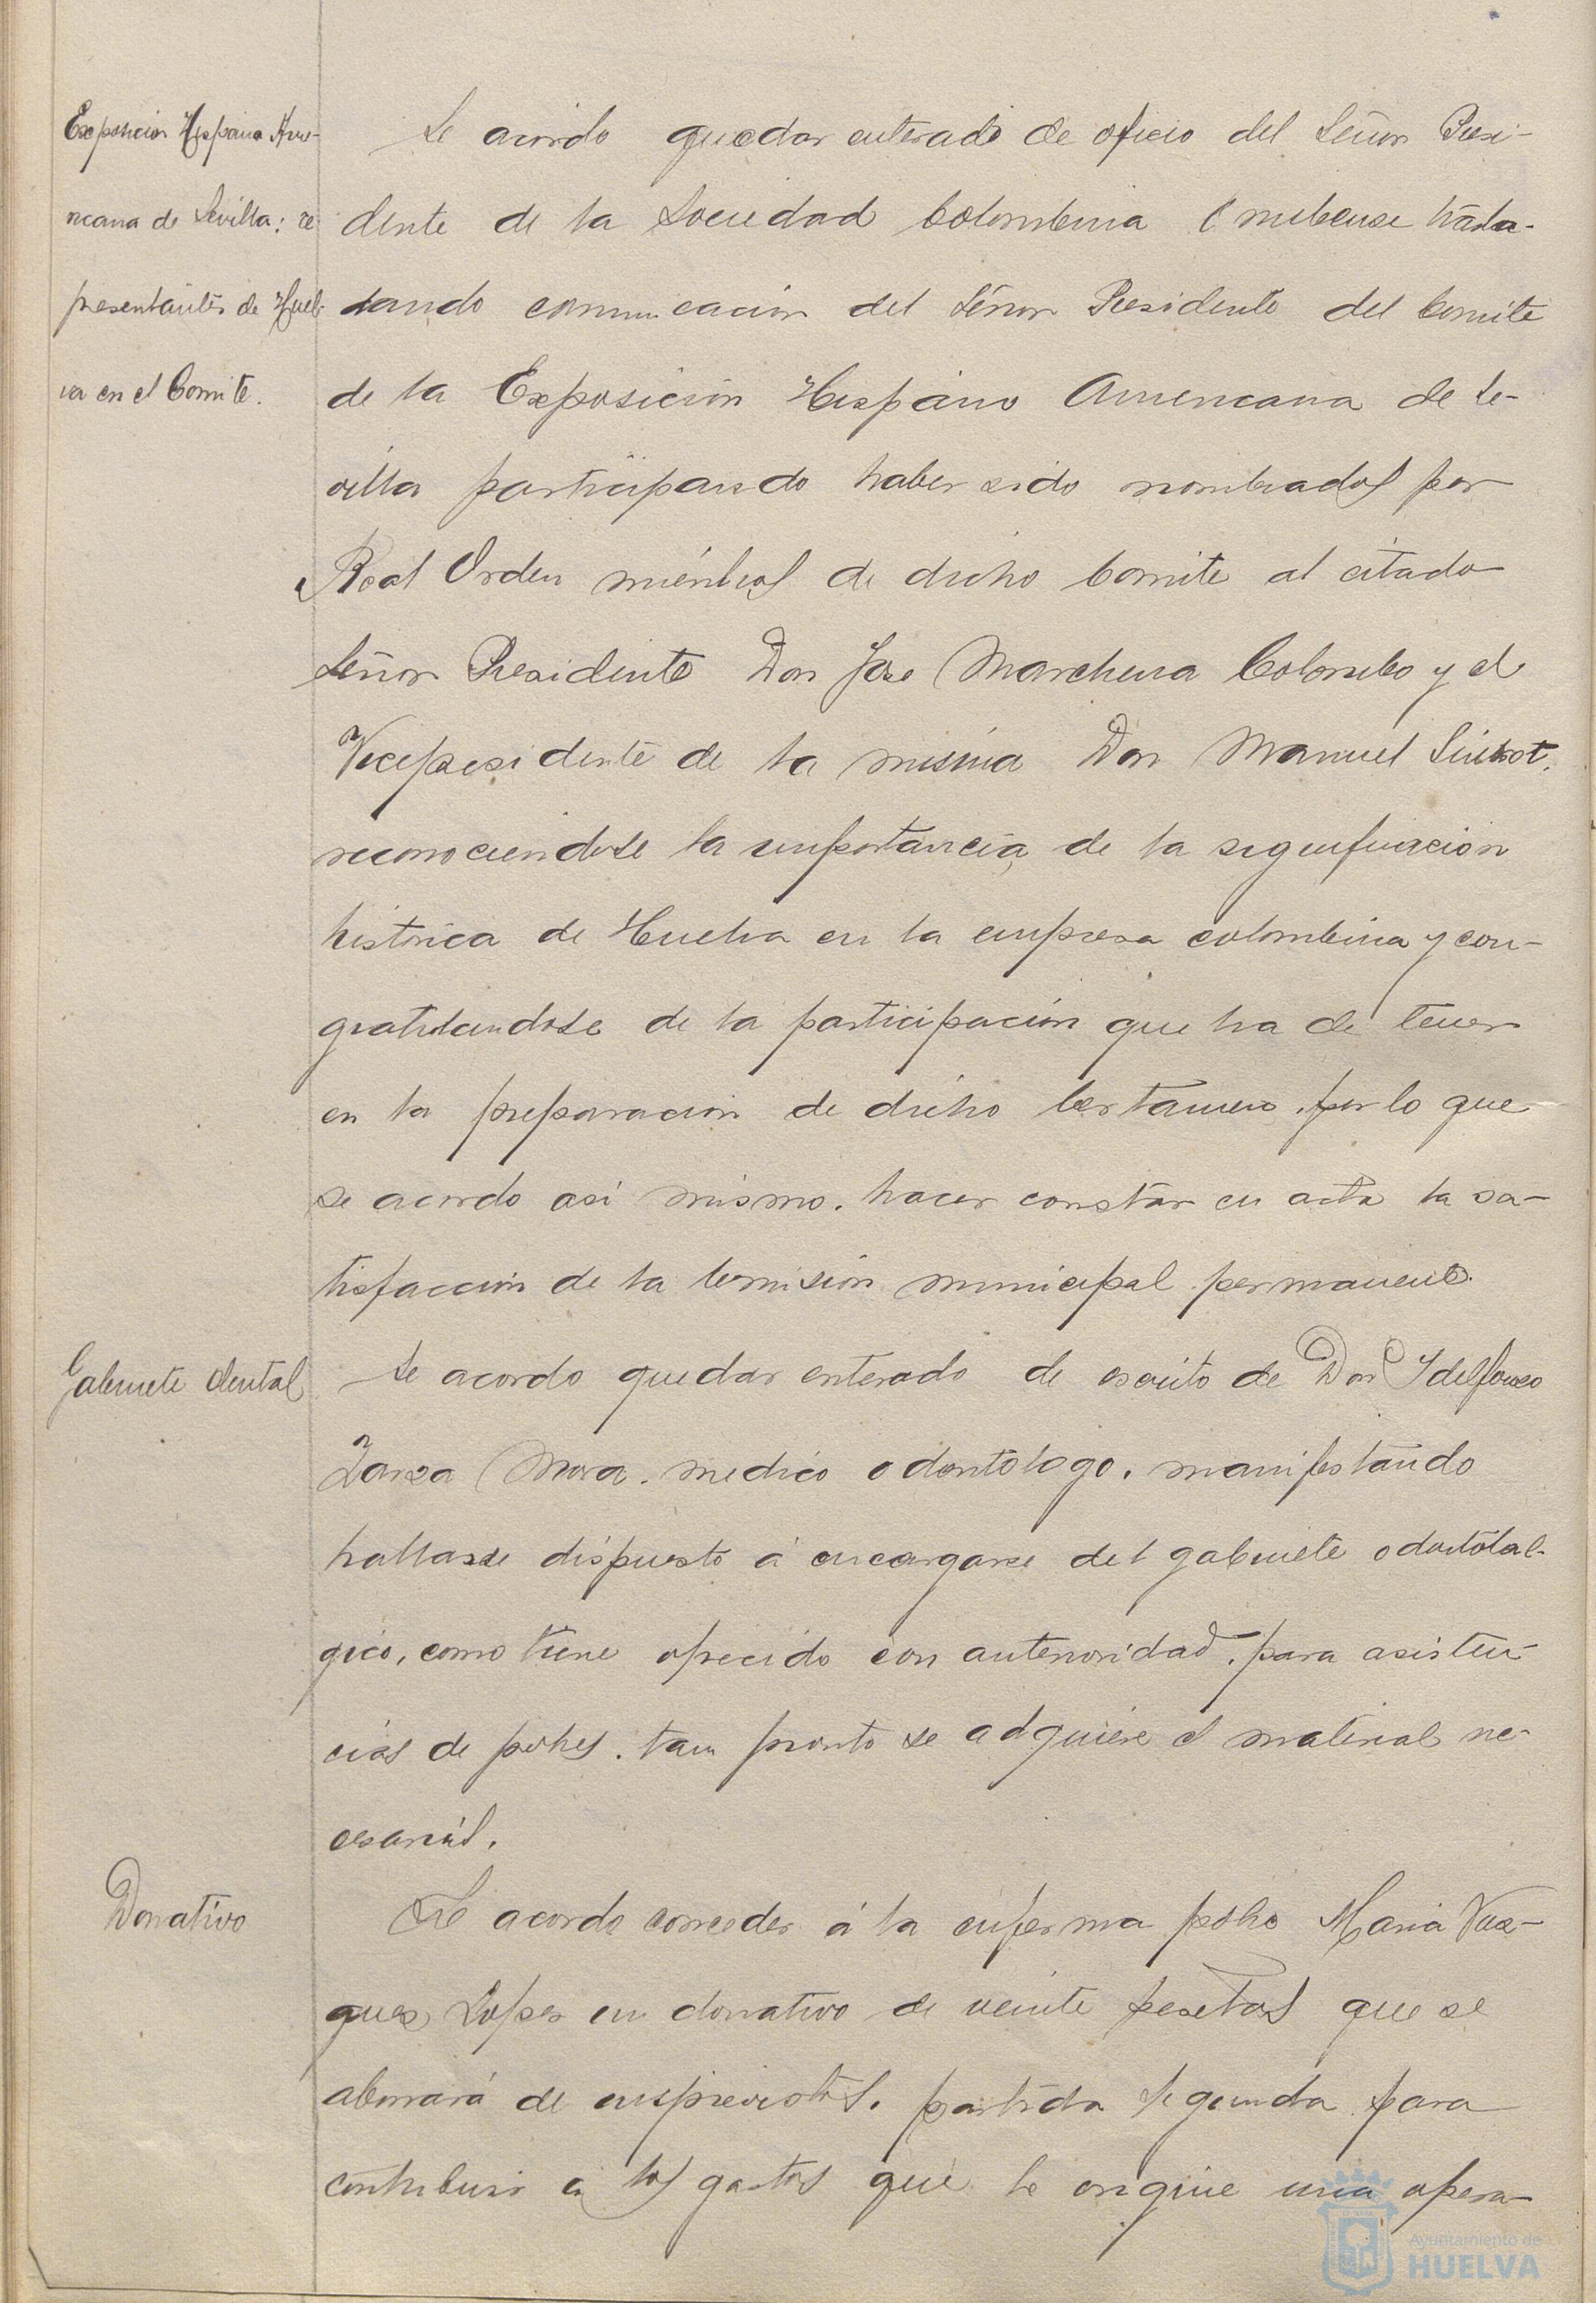 Exposicion Hispano Ame-
ricana de Sevilla: re
presentantes de Huel-
va en el Comite.
Se acordo quedar enterado de oficio del Señor Presi-
dente de la Sociedad Colombina Onubense trasla-
dando comunicación del Señor Presidente del Comite
de la Exposición Hispano Americana de Se-
villa participando haber sido nombrados por
Real Orden miembros de dicho Comite al citado
Señor Presidente Don Jose Marchena Colombo y el
Vicepresidente de la misma Don Manuel Siurot,
reconociendose la importancia de la significacion
historica de Huelva en la empresa colombina y con-
gratulandose de la participación que ha de tener
en la preparacion de dicho Certamen, por lo que
se acordo asi mismo, hacer constar en acta la sa-
tisfacción de la Comisión municipal permanente.
Gabinete dental
Se acordo quedar enterado de escrito de Don Idelfonso
Zarza Mora, medico odontologo, manifestando
hallarse dispuesto á encargarse del gabinete odontolol-
gico, como tiene ofrecido con anterioridad, para asisten-
cias de pobres, tan pronto se adquiere el material ne-
cesario.
Donativo
Se acordo conceder á la enferma pobre Maria Vaz-
quez Lopez un donativo de veinte pesetas que se
abonará de imprevistos, partida segunda para
contribuir a los gastos que le origine una opera-
Ayuntamiento de
HUELVA